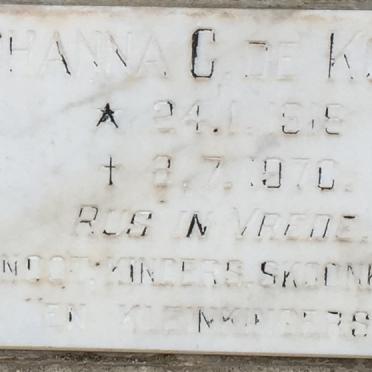 HANNA C. DE KO
★ 24.1.1818
† 8.7.1970.
RUS IN VREDE.
KINDERS, SKOONK
EN KLEINKINDERS